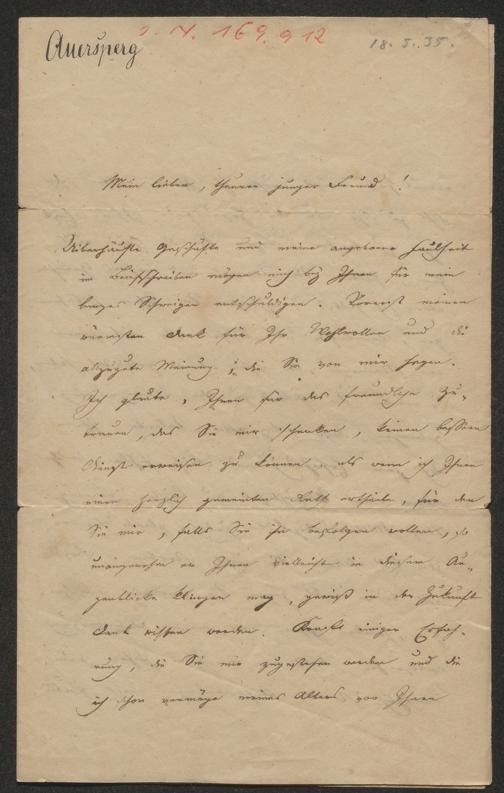 Auersperg
I. N. 169.912
18.5.35.
Mein lieber, theurer junger Freund!
Ueberhäufte Geschäfte und meine angeborne Faulheit
im Briefschreiben mögen mich bey Ihnen für mein
langes Schweigen entschuldigen. Vorerst meinen
wärmsten Dank für Ihr Wohlwollen und die
allzugute Meinung, die Sie von mir hegen.
Ich glaube, Ihnen für das freundliche Zu-
trauen, das Sie mir schenken, keinen bessern
Dienst erweisen zu können als wenn ich Ihnen
einen herzlich gemeinten Rath ertheile, für den
Sie mir, falls Sie ihn befolgen wollen, so
unangenehm er Ihnen vielleicht in diesem Au-
genblicke klingen mag, gewiß in der Zukunft
Dank wissen werden. Kraft einiger Erfah-
rung, die Sie mir zugestehen werden und die
ich schon vermöge meines Alters vor Ihnen